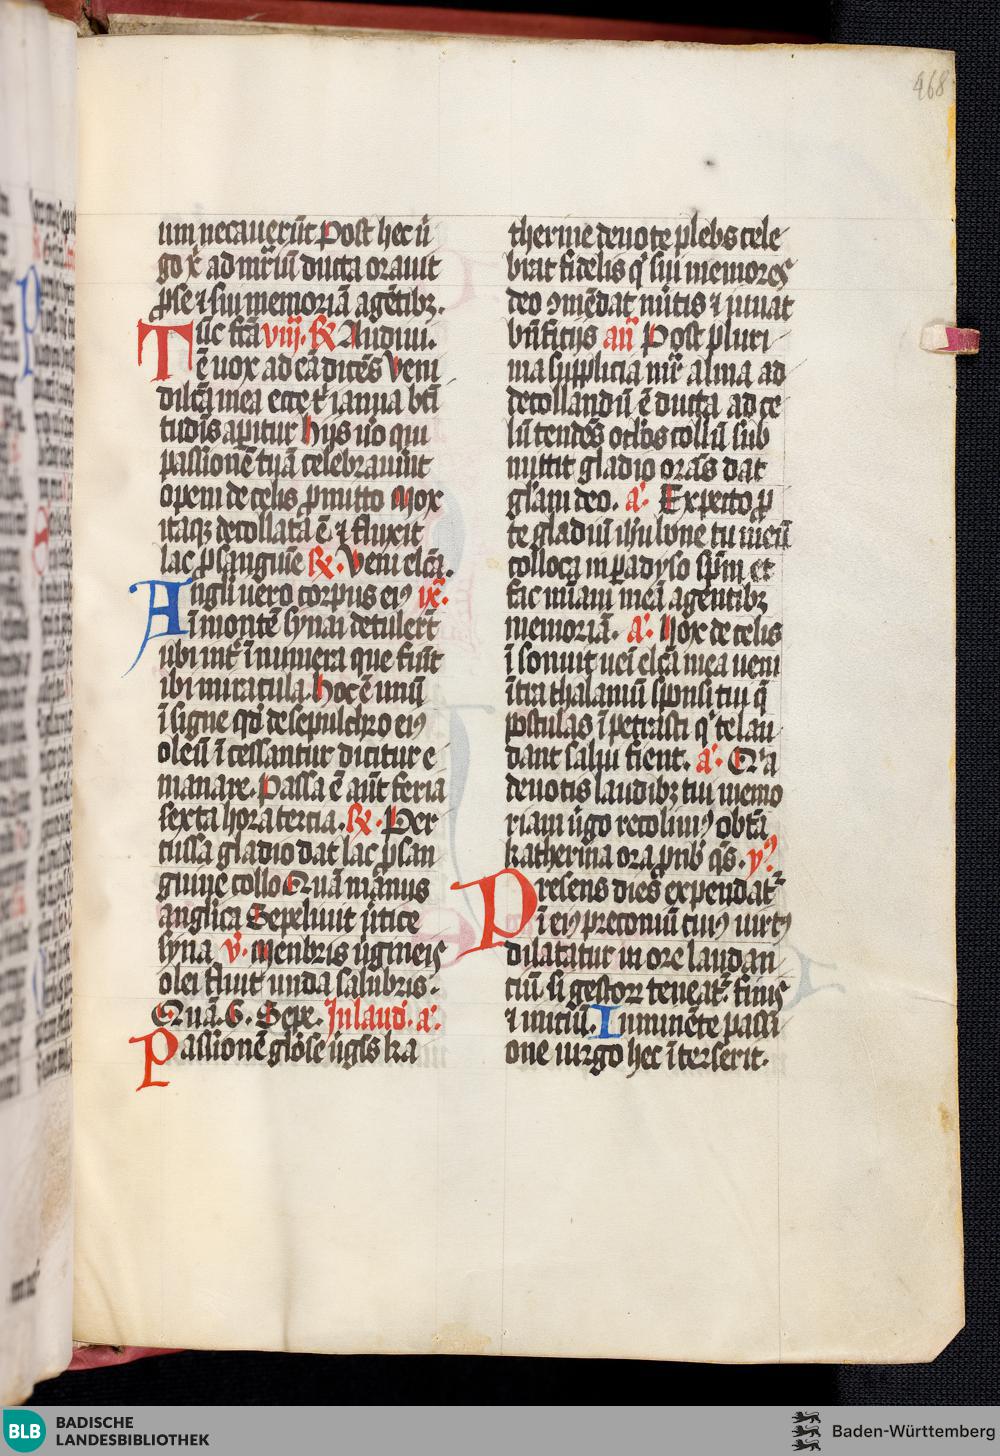 468
um necauerūt Post hec ū
go xͥ ad mr̄iū ducta orauit
ꝓ se ⁊ sui memoriā agētibꝫ.
Tūc fc̄a viij. ℟ Audiui.
ē uox ad eā dicēs Veni
dilc̄a mea ecce xͥ ianua bt̄i
tudīs aꝑitur hijs u̇o qui
passionē tuā celebrauīnt
opem de celis ꝓmitto Mox
itaqꝫ decollata ē ⁊ fluxit
lac ꝓ sanguīe ℟. Veni elc̄a.
Angli uero corpus eiꝰ ix.
ī monte synai detulerūt
ubi int̄ īnumera que fiūt
ibi miracula. hoc ē unū
īsigne qd̄ de sepulchro eiꝰ
oleū īcessantur dicitur e
manare. Passa ē aūt feria
sexta hora tercia. ℟. Per
cussa gladio dat lac ꝓ san
guine collo Quā manus
anglica Sepeliuit ūtice
syna ꝟ. Menbris ūgineis
olei fluit unda salubris.
Quā. G. Sepe. In laud. a.
Passionē glōse ūgīs ka
therine deuote plebs cele
brat fidelis qͥ sui memores
deo ꝯmēdat mūtis ⁊ iuuat
bn̄ficijs añ Post pluri
ma supplicia mr̄ alma ad
decollandū ē ducta ad ce
lū tendēs oc̄los collū sub
mittit gladio orās dat
gl̄am deo. a. Expecto ꝓ
te gladiū ihū bone tu meū
colloca in ꝑadyso sp̄m et
fac mīam meā agentibꝫ
memoriā. a. Vox de celis
īsonuit ueī elc̄a mea ueni
ītra thalamū sponsi tui q̄
postulas īpetrasti qͥ te lau
dant salui fient. a. Qͥa
deuotis laudibꝫ tui memo
riam ūgo recolimꝰ obt̄a
katherina ora ꝓ nob̄ qs̄. yꝰ
Presens dies expendat̄
ī eiꝰ preconiū cuiꝰ uirtꝰ
dilatatur in ore laudan
ciū. si gestoꝝ teneat̄ finis
⁊ initiū. Inminēte passi
one uirgo hec īterserit.
BLB
BADISCHE
LANDESBIBLIOTHEK
Baden-Württemberg